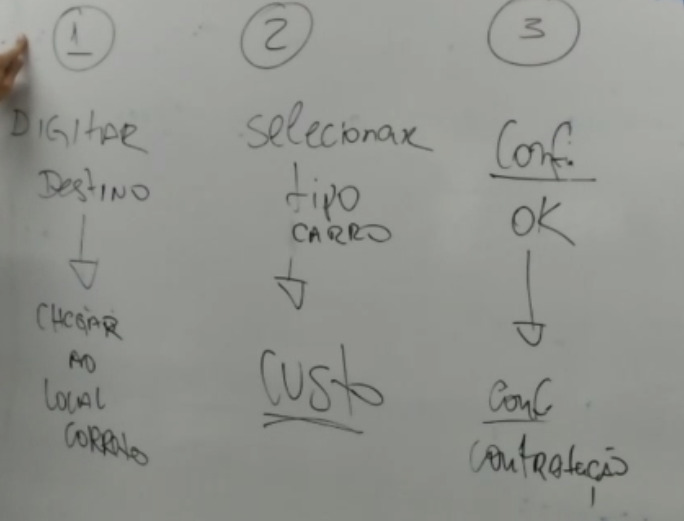 1
DIGITAR
DESTINO
CHEGAR
AO
LOCAL
CORRETO
2
Selecionar
tipo
CARRO
CUSTO
3
Conf.
OK
Conf
CONTRATAÇÃO